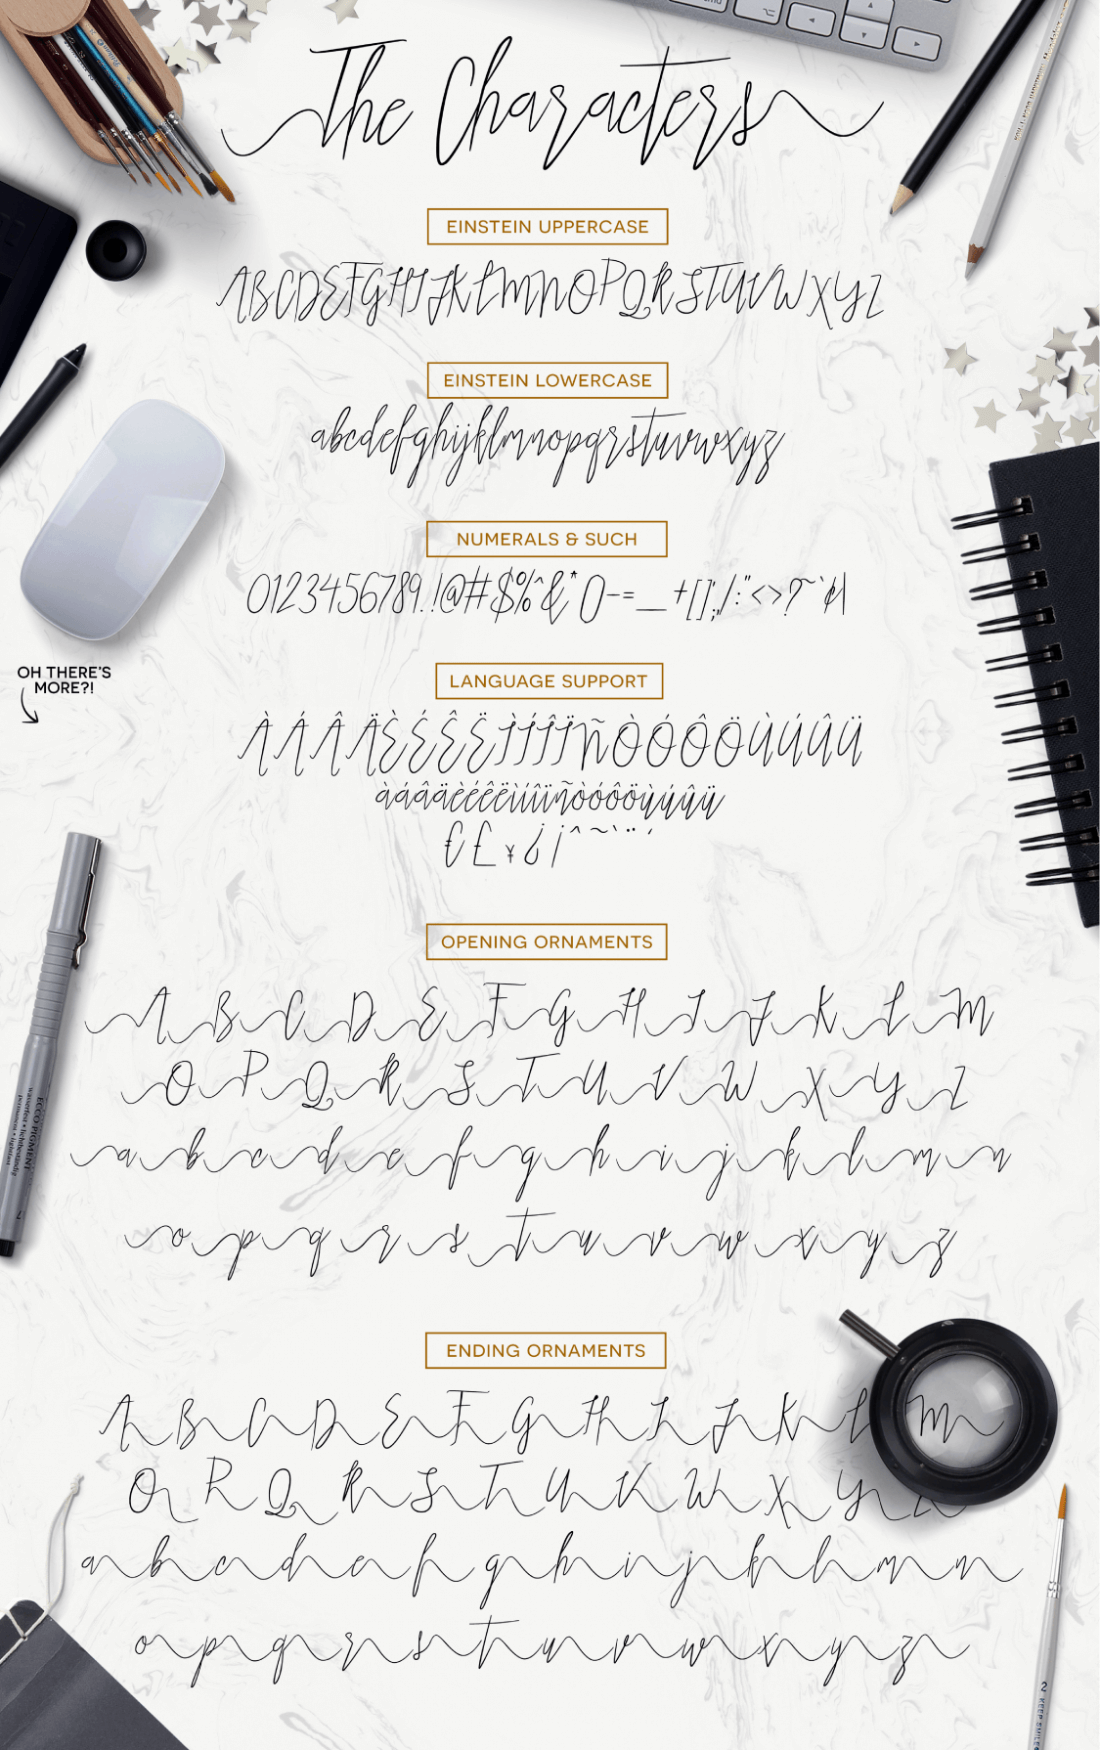 The Characters
EINSTEIN UPPERCASE
ABCDEFGHIJKLMNOPQRSTUVWXYZ
EINSTEIN LOWERCASE
abcdefghijklmnopqrstuvwxyz
NUMERALS & SUCH
0123456789.!@#$%^&*()-=_+[];,/:"<>?~`¢|
LANGUAGE SUPPORT
OH THERE'S
MORE?!
ÀÁÂÄÈÉÊËÌÍÎÏÑÒÓÔÖÙÚÛÜ
àáâäèéêëìíîïñòóôöùúûü
€£¥¿¡ˆ˜`¨´
OPENING ORNAMENTS
A B C D E F G H I J K L M
O P Q R S T U V W X Y Z
a b c d e f g h i j k l m n
o p q r s t u v w x y z
ECCO PIGMENT
ENDING ORNAMENTS
A B C D E F G H I J K L M
O P Q R S T U V W X Y Z
a b c d e f g h i j k l m n
o p q r s t u v w x y z
2